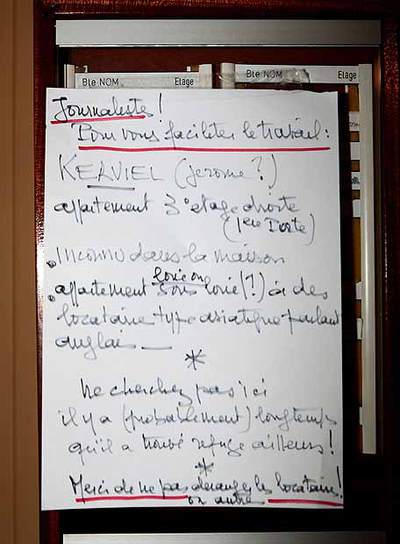 Bte NOM Etage
Bte NOM Etage
Journaliste !
Pour vous faciliter le travail :
KERVIEL (jerome ?)
appartement 3° etage droite
(1ere Porte)
. Inconnu dans la maison
loué ou
. appartement sous loué (?) à des
locataire type asiatique parlant
anglais —
*
Ne cherchez pas ici
il y a (probablement) longtemps
qu'il a trouvé refuge ailleurs !
*
Merci de ne pas deranger les locataires !
ou autres